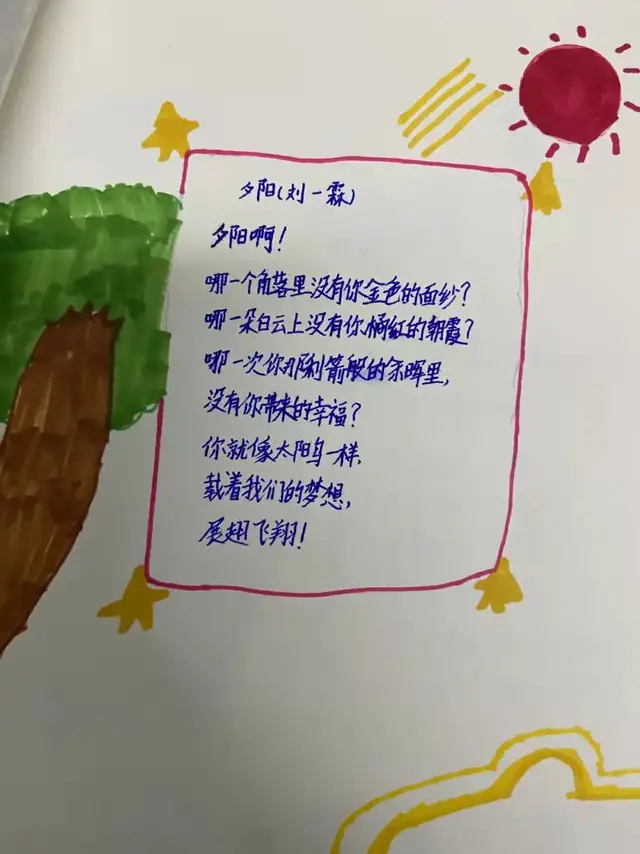 夕阳(刘一霖)
夕阳啊!
哪一个角落里没有你金色的面纱?
哪一朵白云上没有你橘红的朝霞?
哪一次你那利箭般的余晖里,
没有你带来的幸福?
你就像太阳鸟一样,
载着我们的梦想,
展翅飞翔!